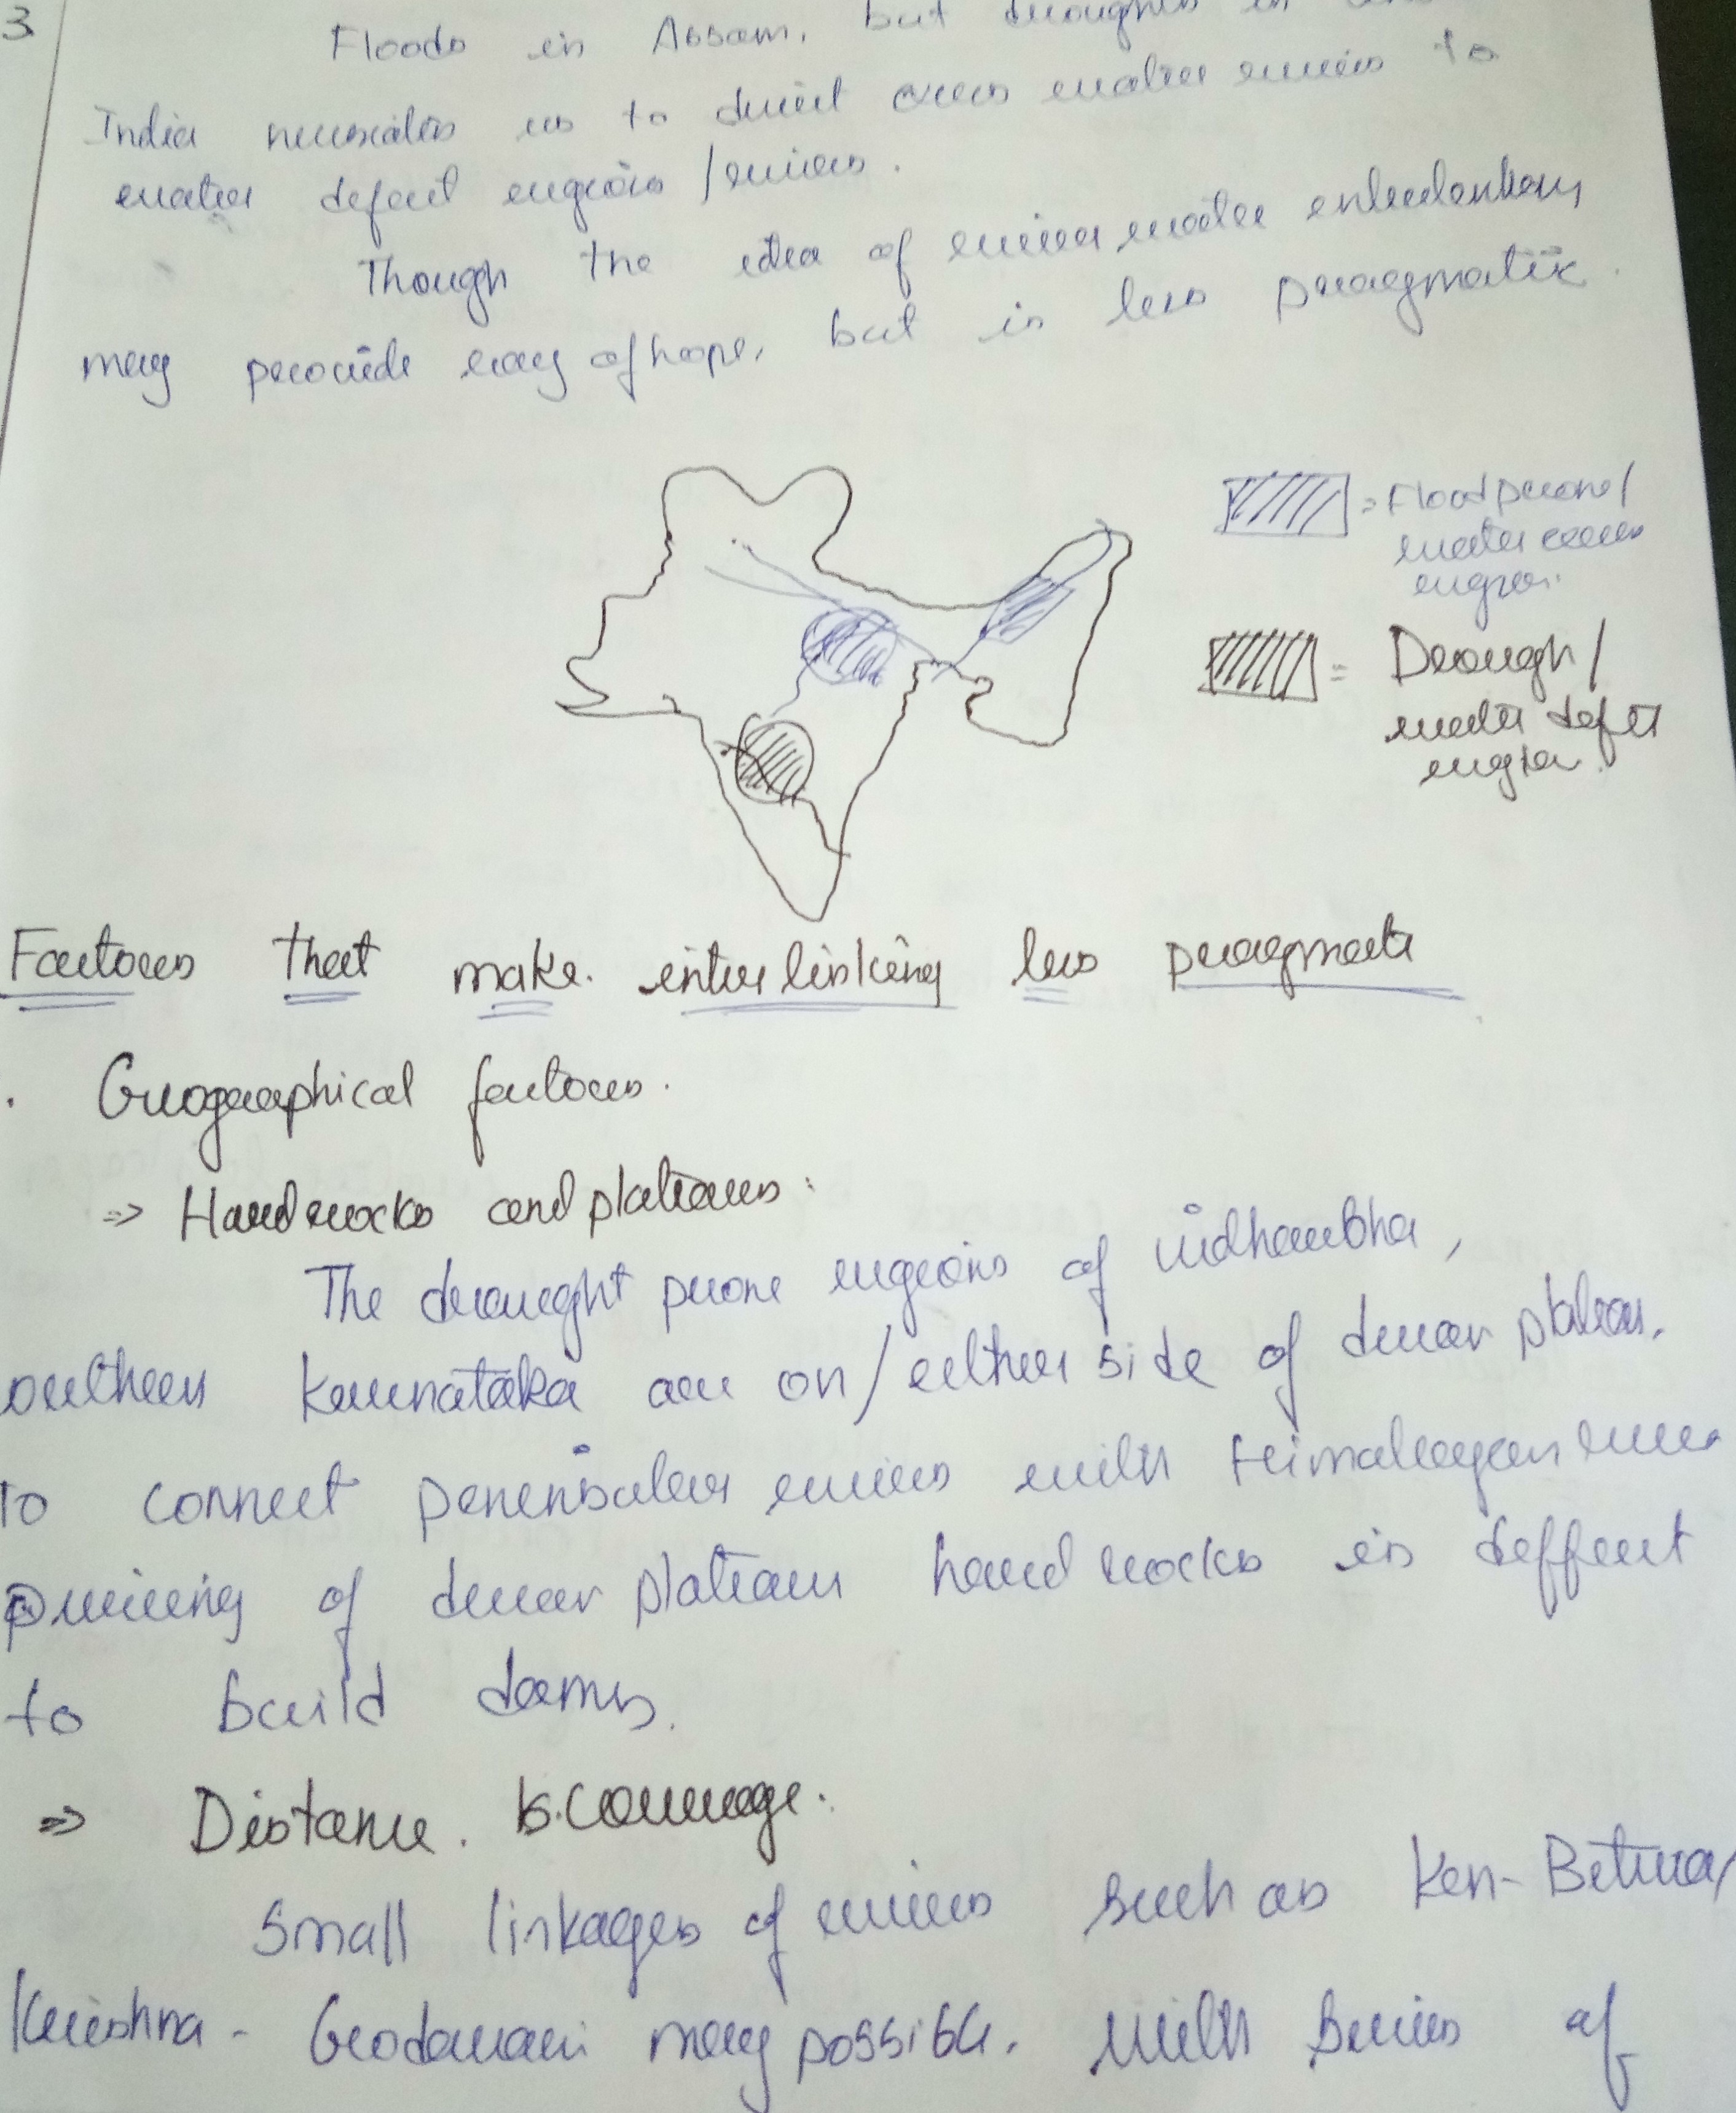 3
Floods in Assam, but droughts in
India necessiates us to divert excess water rivers to
water deficit regions / rivers.
Though the idea of river water
may provide ray of hope, but is less pragmatic.
= Flood prone /
water excess
region.
= Drough /
water defit
region.
Factors that make interlinking less pragmatic
Geographical factors.
⇒ Hard rocks and plateaus:
The drought prone regions of vidharbha,
Karnataka are on / either side of deccan plateau.
To connect peninsular rivers with Himalayan rivers
of deccan plateau hard rocks is
to build dams.
⇒ Distance & Courage.
Small linkages of rivers such as Ken-Betwa,
Krishna - Godavari may possible. with series of